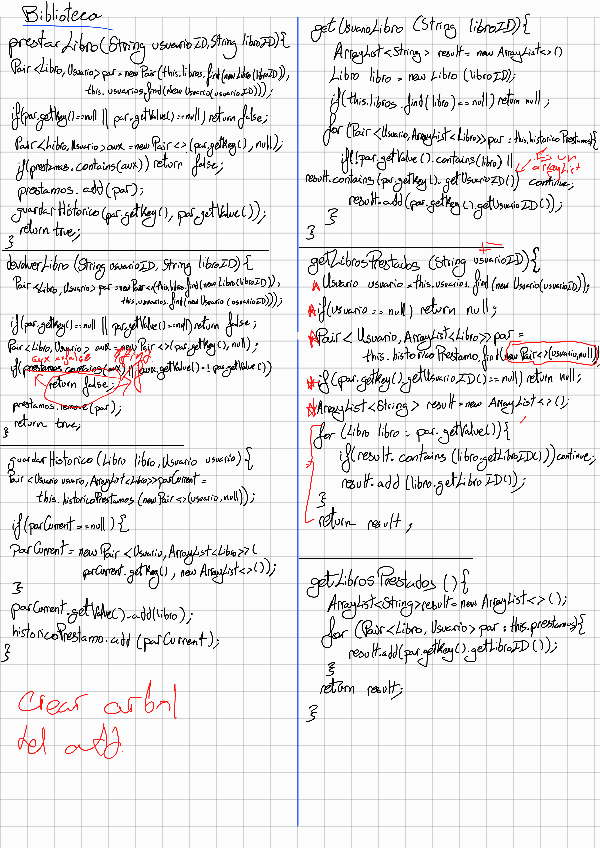 Biblioteca
prestarLibro(String usuarioID, String libroID){
Pair<Libro, Usuario> par = new Pair(this.libros.find(new Libro(libroID)),
this.usuarios.find(new Usuario(usuarioID)));
if(par.getKey()==null || par.getValue()==null) return false;
Pair<Libro, Usuario> aux = new Pair<>(par.getKey(), null);
if(prestamos.contains(aux)) return false;
prestamos.add(par);
guardarHistorico(par.getKey(), par.getValue());
return true;
}
devolverLibro(String usuarioID, String libroID){
Pair<Libro, Usuario> par = new Pair<>(this.libros.find(new Libro(libroID)),
this.usuarios.find(new Usuario(usuarioID)));
if(par.getKey()==null || par.getValue()==null) return false
Pair<Libro, Usuario> aux = new Pair<>(par.getKey(), null);
if(prestamos.contains(aux) || aux.getValue() != par.getValue())
return false;
prestamos.remove(par);
return true;
}
guardarHistorico(Libro libro, Usuario usuario){
Pair<Usuario usuario, ArrayList<Libro>> parCurrent =
this.historicoPrestamos(new Pair<>(usuario, null));
if(parCurrent==null){
parCurrent = new Pair<Usuario, ArrayList<Libro>>(
parCurrent.getKey(), new ArrayList<>());
}
parCurrent.getValue().add(libro);
historicoPrestamo.add(parCurrent);
}
crear arbol
del add
getUsuarioLibro(String libroID){
ArrayList<String> result = new ArrayList<>()
Libro libro = new Libro(libroID);
if(this.libros.find(libro)==null) return null;
for(Pair<Usuario, ArrayList<Libro>> par : this.historicoPrestamo){
if(!par.getValue().contains(libro) ||
Es un
arrayList
result.contains(par.getKey().getUsuarioID()) continue;
result.add(par.getKey().getUsuarioID());
}
}
getLibrosPrestados(String usuarioID){
Usuario usuario = this.usuarios.find(new Usuario(usuarioID));
if(usuario == null) return null;
Pair<Usuario, ArrayList<Libro>> par =
this.historicoPrestamo.find(new Pair<>(usuario, null))
if(par.getKey().getUsuarioID()==null) return null;
ArrayList<String> result = new ArrayList<>();
for(Libro libro : par.getValue()){
if(result.contains(libro.getLibroID())) continue;
result.add(libro.getLibroID());
}
return result;
getLibrosPrestados(){
ArrayList<String> result = new ArrayList<>();
for(Pair<Libro, Usuario> par : this.prestamos){
result.add(par.getKey().getLibroID());
}
return result;
}